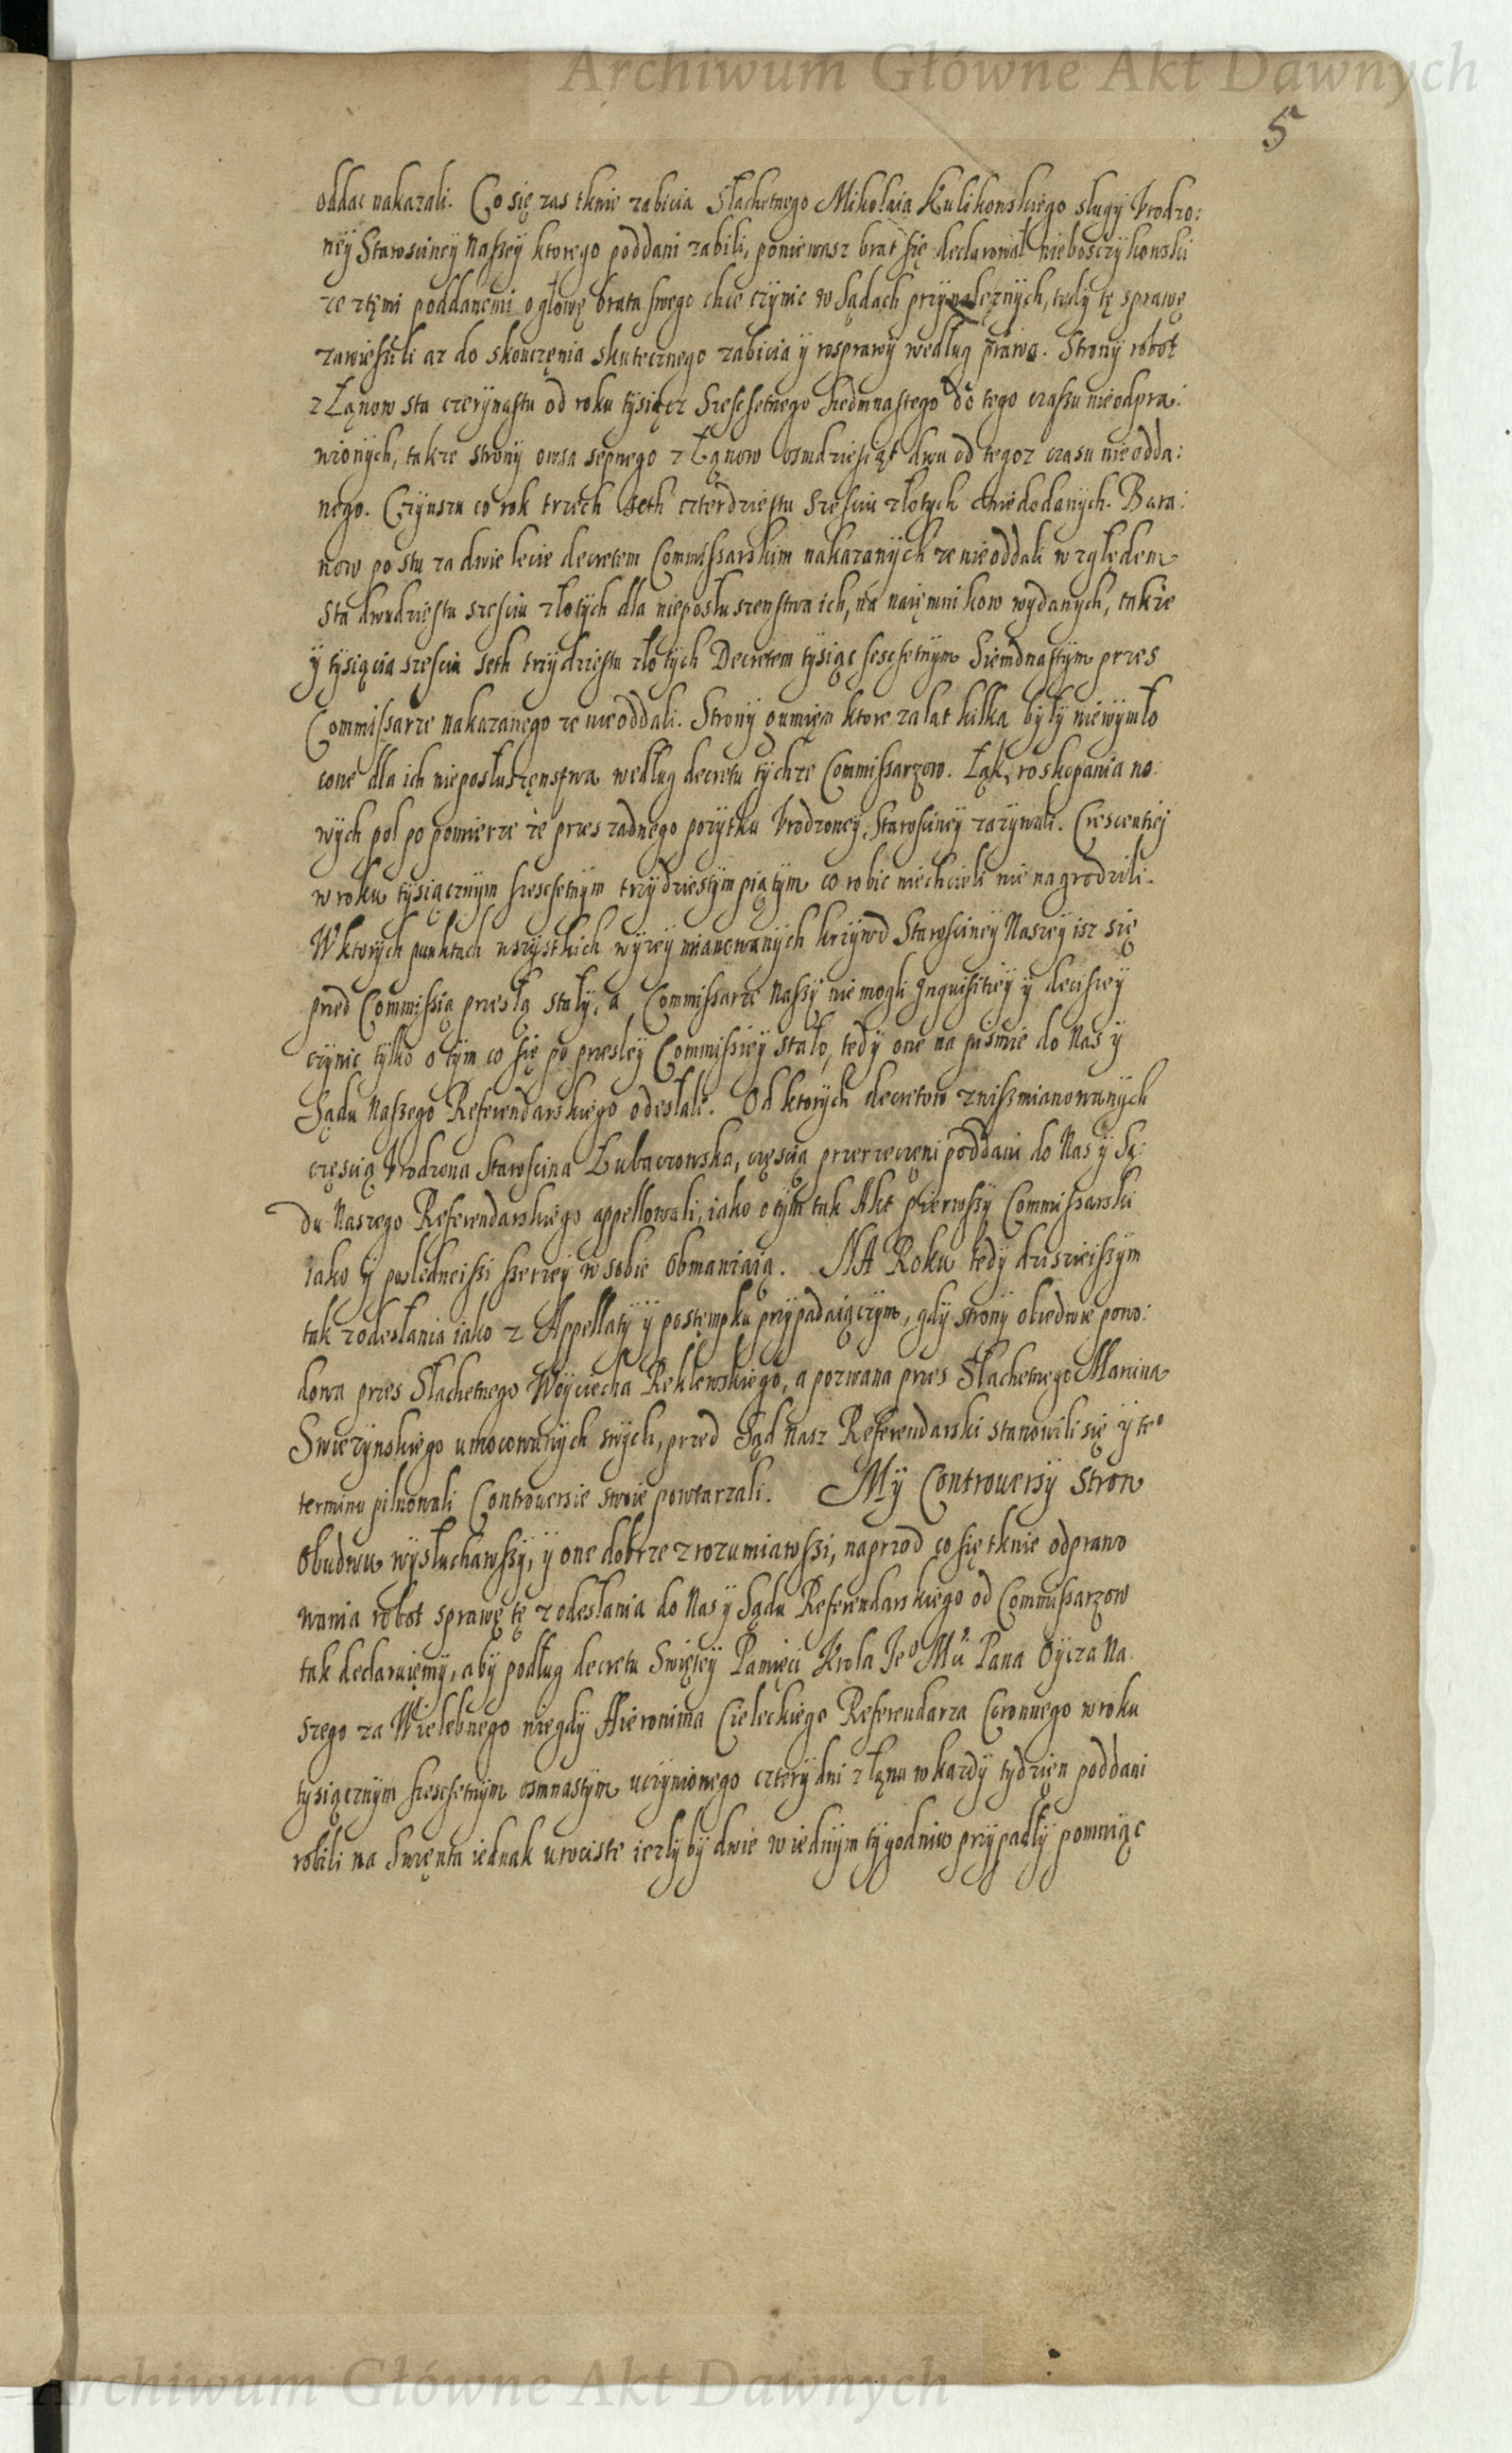 Archiwum Główne Akt Dawnych
5
oddac nakazali. Co się zas tknie zabicia Slachetnego Mikołaia Kulikowskiego sługÿ Vrodzo:
neÿ Starosciney Naszeÿ ktorego poddani zabili, poniewasz brat się declarował nieboszczÿkowski
ze ztęmi poddanemi o głowę brata swego chce czÿnic w Sądach przÿnależnÿch, tedÿ tę sprawę
zawiesili az do skonczęnia skutecznego zabicia ÿ rosprawÿ według prawa. Stronÿ robot
z Łąnow sta czerÿnastu od roku tÿsiącz Szescsetnego Siedmnastego do tego czassu nieodpra:
wionÿch, takze stronÿ owsa sepnego z Łąnow osmdziesiąt dwu od tegoz czasu nieodda:
nego. Czÿnszu co rok trzech seth czterdziestu szesciu złotÿch niedodanÿch. Bara:
now po stu za dwie lecie decretem Commissarskim nakazanÿch ze nieoddali względem
sta dwudziestu szesciu złotÿch dla nieposłuszenstwa ich, na naięmnikow wÿdanÿch, takze
ÿ tÿsiącia szesciu seth trzÿdziestu złotÿch Decretem tÿsiąc sescsetnÿm Siemdnastÿm przes
Commissarze nakazanego ze nieoddali. Stronÿ gumięn ktore za lat kilka bÿłÿ niewÿmło
cone dla ich nieposłuszęnstwa według decretu tÿchze Commissarzow. Łąk, roskopania no:
wÿch pol po pomierze ze przes zadnego pozÿtku Vrodzoneÿ Starosciney zazÿwali. Crescentieÿ
w roku tÿsiącznÿm szescsetnÿm trzÿdziestÿm piątÿm co robic niechcieli nie nagrodzili.
W ktorÿch punktach wszÿstkich wÿzeÿ mianowanÿch krzÿwd Starosciney Naszeÿ isz się
przed Commissią przeszłą stałÿ, a Commissarze Naszÿ nie mogli Inquisitieÿ ÿ decisieÿ
czÿnic tÿlko o tÿm co się po przesłeÿ Commissieÿ stało, tedÿ one na pismie do Nas ÿ
Sądu Naszego Referendarskiego odesłali. Od ktorÿch decretow zniszmianowanÿch
częscią Vrodzona Starościna Łubaczowska, częscią przerzeczęni poddani do Nas ÿ Są:
du Naszego Referendarskiego appellowali, iako o tÿm tak Akt pierwszÿ Commissarski
iako ÿ poslednieiszi szerzeÿ w sobie obmawiaią. NA Roku tedÿ dzisieiszÿm
tak z odesłania iako z Appellatÿ ÿ postęmpku przÿpadaiączÿm, gdÿ stronÿ obiedwie powo:
dowa przes Slachetnego Woÿciecha Reklewskiego, a pozwana przes Slachetnego Marcina
Swierzÿnskiego umocowanÿch swÿch, przed Sąd Nasz Referendarski stanowili się ÿ teº
terminu pilnowali Controversie swoie powtarzali. MŸ Controversÿ Stron
obudwu wÿsłuchawszÿ, ÿ one dobrze zrozumiawszi, naprzod co się tknie odprawo
wania robot sprawę tę z odesłania do Nas ÿ Sądu Referendarskiego od Commissarzow
tak declaruięmÿ, abÿ podług decretu Swięteÿ Pamięci Krola Jeº Mci Pana Oÿcza Na
szego za Wielebnego niegdÿ Hieronima Cieleckiego Referendarza Coronnego w roku
tÿsiącznÿm szescsetnÿm osmnastÿm uczÿnionego czterÿ dni z łąnu w kazdÿ tÿdzięn poddani
robili na Swięnta iednak urocziste iezlÿ bÿ dwie w iednÿm tÿgodniu przÿpadłÿ pomniąc
Archiwum Główne Akt Dawnych